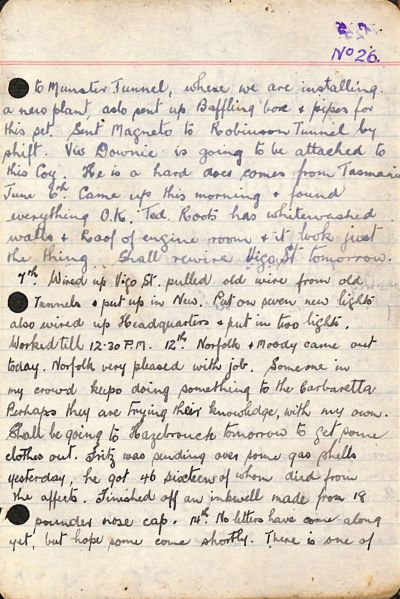 No 26.
to Munster Tunnel, where we are installing
a new plant, aslo sent up Baffling box & pipes for
this set. Sent Magneto to Robinson Tunnel by
shift. Viv Downie is going to be attached to
this Coy. He is a hard does comes from Tasmania
June 6th Came up this morning & found
everything O.K. Tod. Roots has whitewashed
walls & Roof of engine room & it look just
the thing. Shall rewire Vigo St tomorrow.
7th. Wired up Vigo St. pulled old wire from old
Tunnels & put up in New. Put on seven new lights
also wired up Headquarters & put in two lights.
Worked till 12.30 P.M. 12th. Norfolk & Moody came out
today. Norfolk very pleased with job. Someone in
my crowd keeps doing something to the Carbaretta
Perhaps they are trying their knowledge, with my own.
Shall be going to Hazebrouck tomorrow to get some
clothes out. Fritz was sending over some gas shells
yesterday, he got 46 sixteen of whom died from
the affects. Finished off an inkwell made from 18
pounder nose cap. 14th. No letters have come along
yet, but hope some come shortly. There is one of